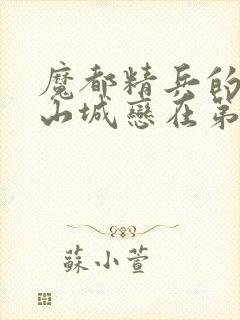 魔都精兵的
山城戀在第
蘇小萱